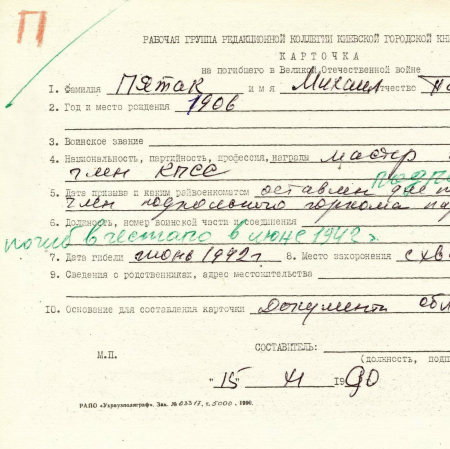 П
РАБОЧАЯ ГРУППА РЕДАКЦИОННОЙ КОЛЛЕГИИ КИЕВСКОЙ ГОРОДСКОЙ КНИ
КАРТОЧКА
на погибшего в Великой Отечественной войне
1. Фамилия Пятак имя Михаил тчество
2. Год и место рождения 1906
3. Воинское звание
4. Национальность, партийность, профессия, награды мастер
член КПСС
5. Дата призыва и каким райвоенкоматом оставлен для п
член подпольного горкома па
6. Должность, номер воинской части и соединения
погиб в гестапо в июне 1942 г.
7. Дата гибели июнь 1942 г 8. Место захоронения схв
9. Сведения о родственниках, адрес местожительства
10. Основание для составления карточки Документы обл
СОСТАВИТЕЛЬ:
М.П.
(должность, подп
"15" VI 1990
РАПО «Укрвузполиграф». Зак. № 0331Т, т. 5000. 1990.